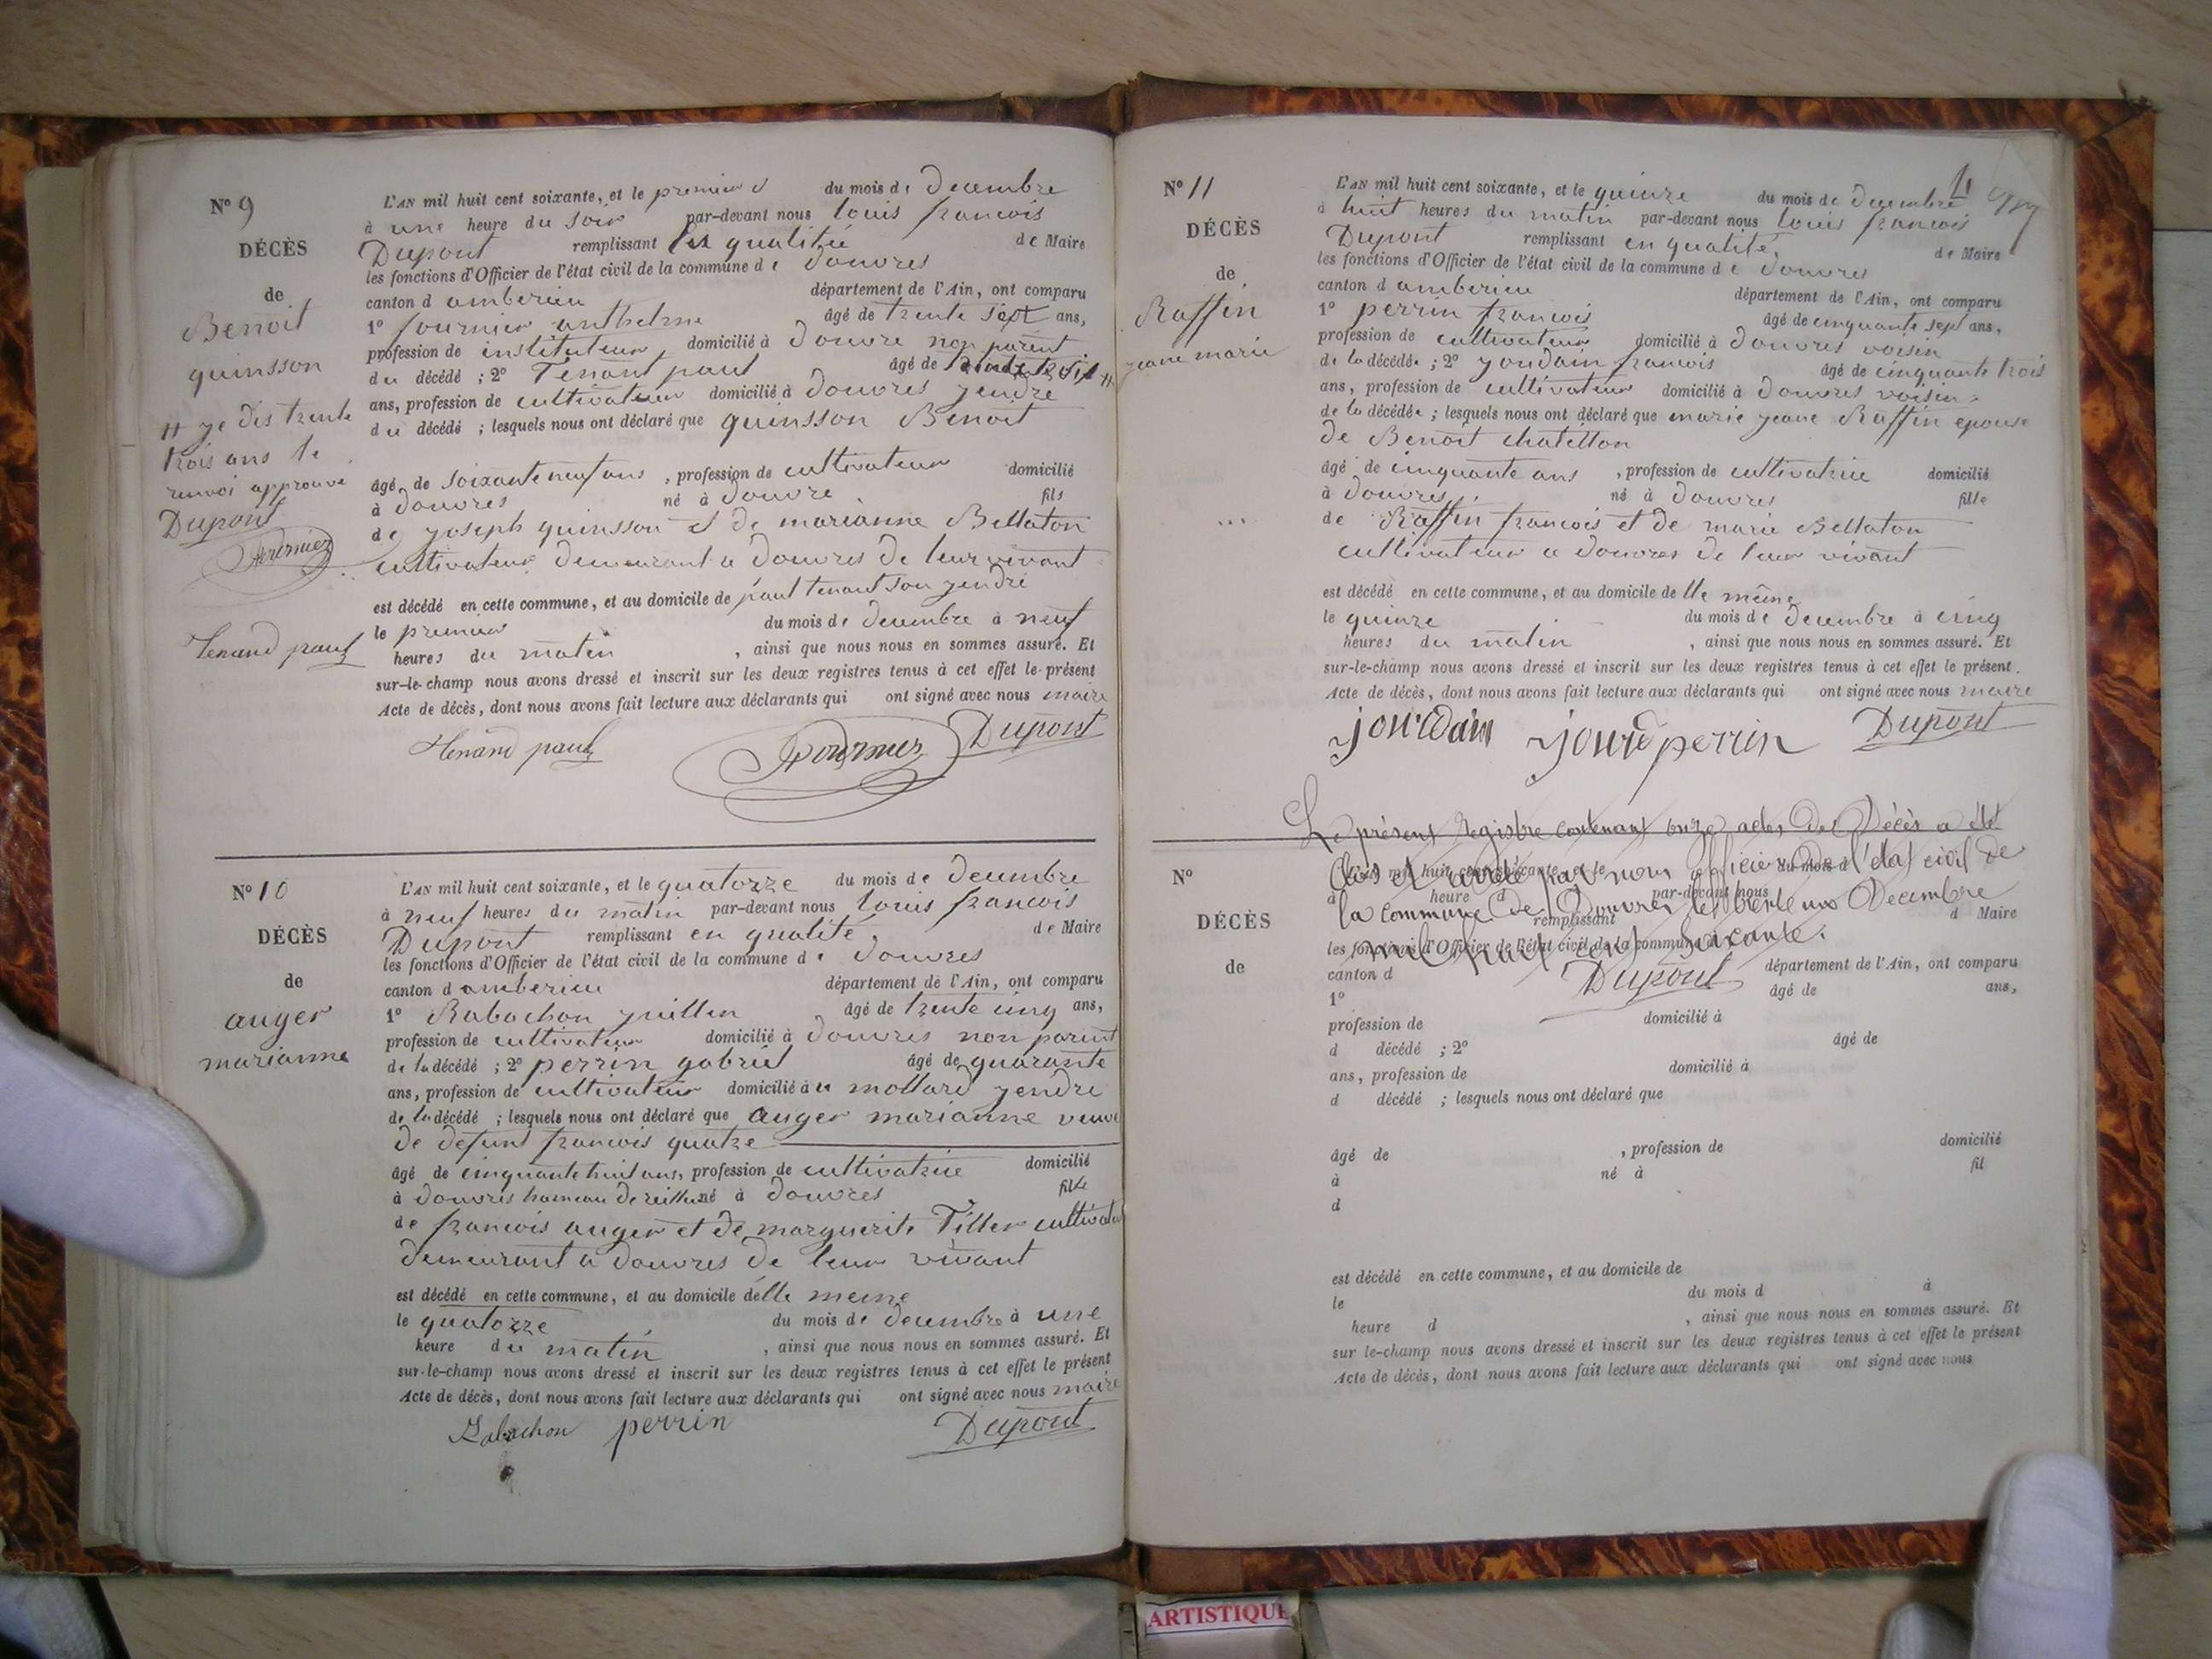 N° 9
DÉCÈS
de
Benoit
quinsson
# ye dis trente
trois ans le
renvoi approuvé
Dupont
Fournier
Tenand paul
L'AN mil huit cent soixante, et le premier d du mois de Decembre
à une heure du soir par-devant nous louis francois
Dupont remplissant en qualitée de Maire
les fonctions d'Officier de l'état civil de la commune de douvres
canton d amberieu département de l'Ain, ont comparu
1° fournier anthelme âgé de trente sept ans,
profession de instituteur domicilié à douvre non parent
du décédé ; 2° Tenant paul âgé de #
ans, profession de cultivateur domicilié à douvres yendre
du décédé ; lesquels nous ont déclaré que quinsson Benoit
âgé de soixante neuf ans , profession de cultivateur domicilié
à douvres né à douvre fils
de yoseph quinsson et de marianne Bellaton
cultivateur demeurant a douvres de leur vivant
est décédé en cette commune, et au domicile de paul tenant son yendre
le premier du mois de decembre à neuf
heures du matin , ainsi que nous nous en sommes assuré. Et
sur-le-champ nous avons dressé et inscrit sur les deux registres tenus à cet effet le présent
Acte de décès, dont nous avons fait lecture aux déclarants qui ont signé avec nous maire
Tenand paul Fournier Dupont
N° 10
DÉCÈS
de
auger
marianne
L'AN mil huit cent soixante, et le quatorze du mois de decembre
à neuf heures du matin par-devant nous louis francois
Dupont remplissant en qualité de Maire
les fonctions d'Officier de l'état civil de la commune de douvres
canton d amberieu département de l'Ain, ont comparu
1° Rabachon yuillen âgé de trente cinq ans,
profession de cultivateur domicilié à douvres non parent
de la décédé ; 2° perrin gabriel âgé de quarante
ans, profession de cultivateur domicilié à u mollard yendre
de la décédé ; lesquels nous ont déclaré que auger marianne veuve
de defunt francois quatre
âgé de cinquante huit ans, profession de cultivatrice domicilié
à douvres hameau de né à douvres fille
de francois auger et de marguerite Tiller
demeurant a douvres de leur vivant
est décédé en cette commune, et au domicile delle meme
le quatorze du mois de decembre à une
heure du matin , ainsi que nous nous en sommes assuré. Et
sur-le-champ nous avons dressé et inscrit sur les deux registres tenus à cet effet le présent
Acte de décès, dont nous avons fait lecture aux déclarants qui ont signé avec nous maire
Rabachon perrin Dupont
11
N° 11
DÉCÈS
de
Raffin
yeane marie
L'AN mil huit cent soixante, et le quinze du mois de decembre
à huit heures du matin par-devant nous louis francois
Dupont remplissant en qualité de Maire
les fonctions d'Officier de l'état civil de la commune de douvres
canton d amberieu département de l'Ain, ont comparu
1° perrin francois âgé de cinquante sept ans,
profession de cultivateur domicilié à douvres voisin
de la décédée ; 2° yourdain francois âgé de cinquante trois
ans, profession de cultivateur domicilié à douvres voisin
de la décédée ; lesquels nous ont déclaré que marie yeane Raffin epouse
de Benoit chatellon
âgé de cinquante ans , profession de cultivatrice domicilié
à douvres né à douvres fille
de Raffin francois et de marie Bellaton
cultivateur a douvres de leur vivant
est décédé en cette commune, et au domicile de lle même
le quinze du mois de decembre à cinq
heures du matin , ainsi que nous nous en sommes assuré. Et
sur-le-champ nous avons dressé et inscrit sur les deux registres tenus à cet effet le présent
Acte de décès, dont nous avons fait lecture aux déclarants qui ont signé avec nous maire
jourdain perrin Dupont
Le présent Registre contenant onze actes de Décès a été
Clos et arrêté par nous officier de l'état civil de
la commune de Douvres le trente un Decembre
mil huit cent soixante.
Dupont
N°
DÉCÈS
de
L'AN mil huit cent soixante, et le du mois d
à heure d par-devant nous
remplissant d Maire
les fonctions d'Officier de l'état civil de la commune d
canton d département de l'Ain, ont comparu
1° âgé de ans,
profession de domicilié à
d décédé ; 2° âgé de
ans, profession de domicilié à
d décédé ; lesquels nous ont déclaré que
âgé de , profession de domicilié
à né à fil
d
est décédé en cette commune, et au domicile de
le du mois d à
heure d , ainsi que nous nous en sommes assuré. Et
sur le-champ nous avons dressé et inscrit sur les deux registres tenus à cet effet le présent
Acte de décès, dont nous avons fait lecture aux déclarants qui ont signé avec nous
ARTISTIQUE